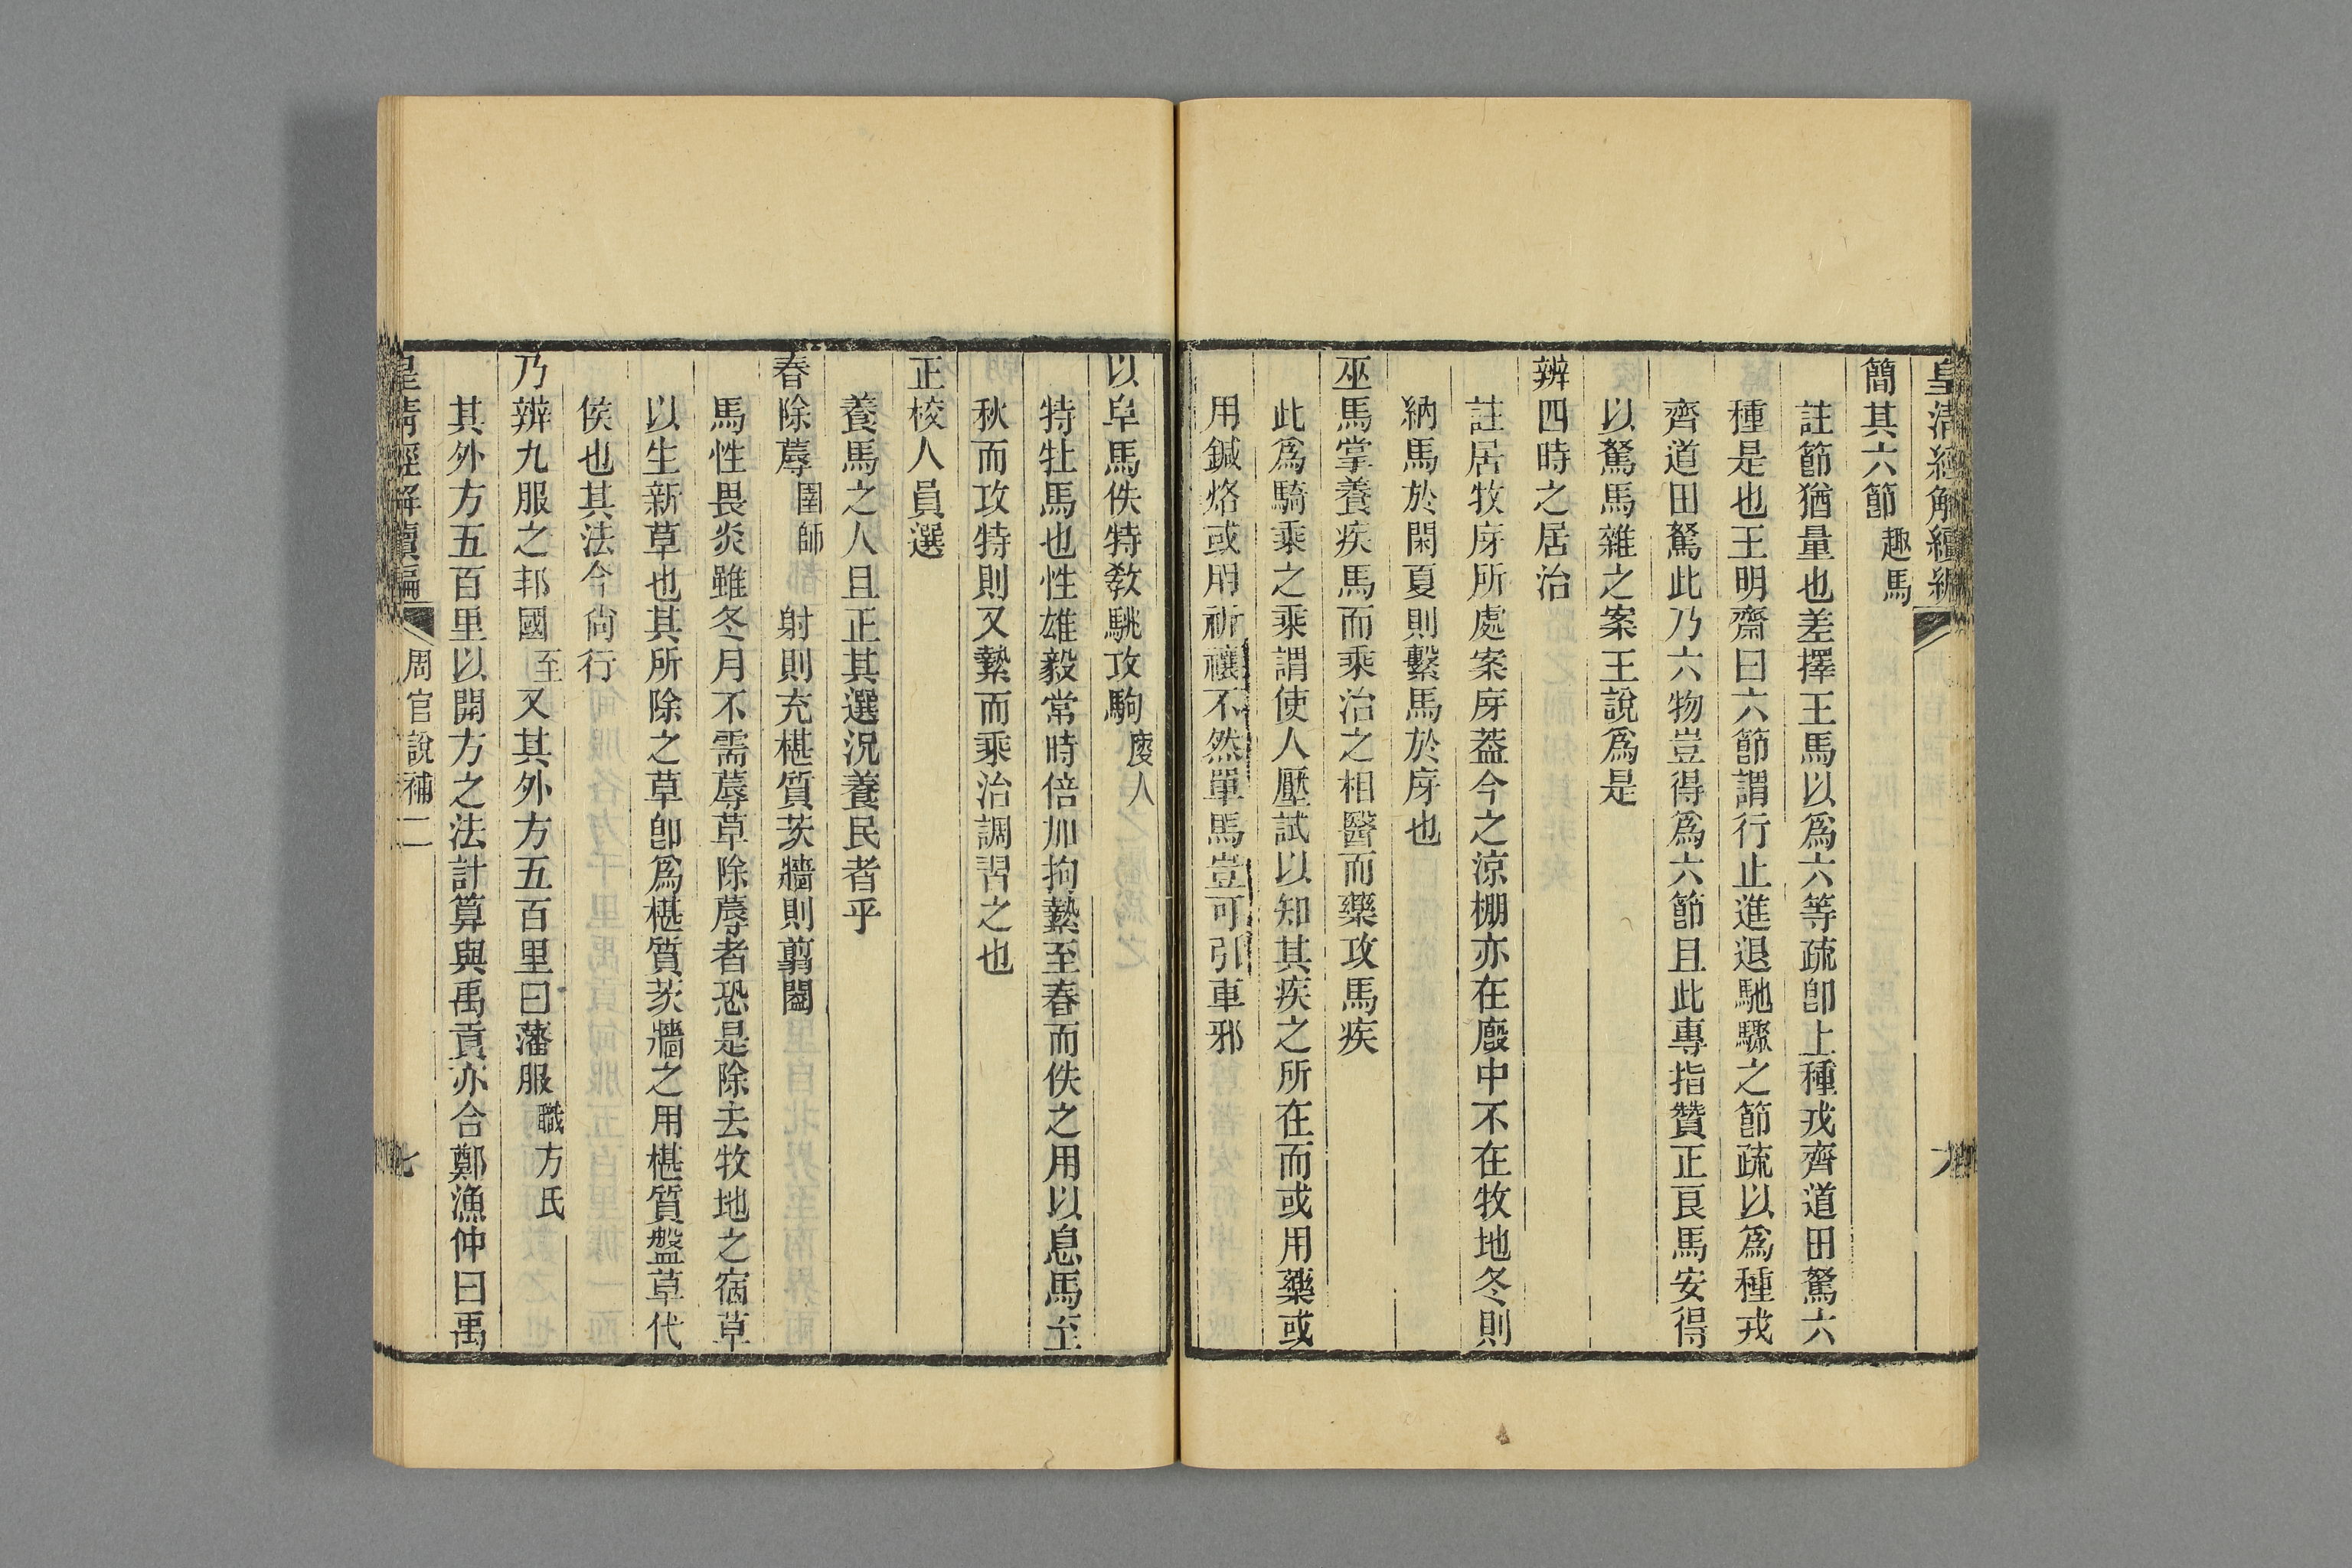 皇清經解續編
簡其六節趣馬
註節猶量也差擇王馬以爲六等疏卽上種戎齊道田駑六
種是也王明齋曰六節謂行止進退馳驟之節疏以爲種戎
齊道田駑此乃六物豈得爲六節且此專指贊正良馬安得
以駑馬雜之案王說爲是
辨四時之居治
註居牧庌所處案庌葢今之涼棚亦在廏中不在牧地冬則
納馬於閑夏則繫馬於庌也
巫馬掌養疾馬而乘治之相醫而藥攻馬疾
此爲騎乘之乘謂使人壓試以知其疾之所在而或用藥或
用鍼烙或用祈禳不然單馬豈可引車邪
以阜馬佚特敎駣攻駒廋人
特牡馬也性雄毅常時倍加拘縶至春而佚之用以息馬至
秋而攻特則又縶而乘治調習之也
正校人員選
養馬之人且正其選況養民者乎
春除蓐圉師射則充椹質茨牆則翦闔
馬性畏炎雖冬月不需蓐草除蓐者恐是除去牧地之宿草
以生新草也其所除之草卽爲椹質茨牆之用椹質盤草代
侯也其法今尙行
乃辨九服之邦國至又其外方五百里曰藩服職方氏
其外方五百里以開方之法計算與禹貢亦合鄭漁仲曰禹
皇清經解續編
周官說補二
七